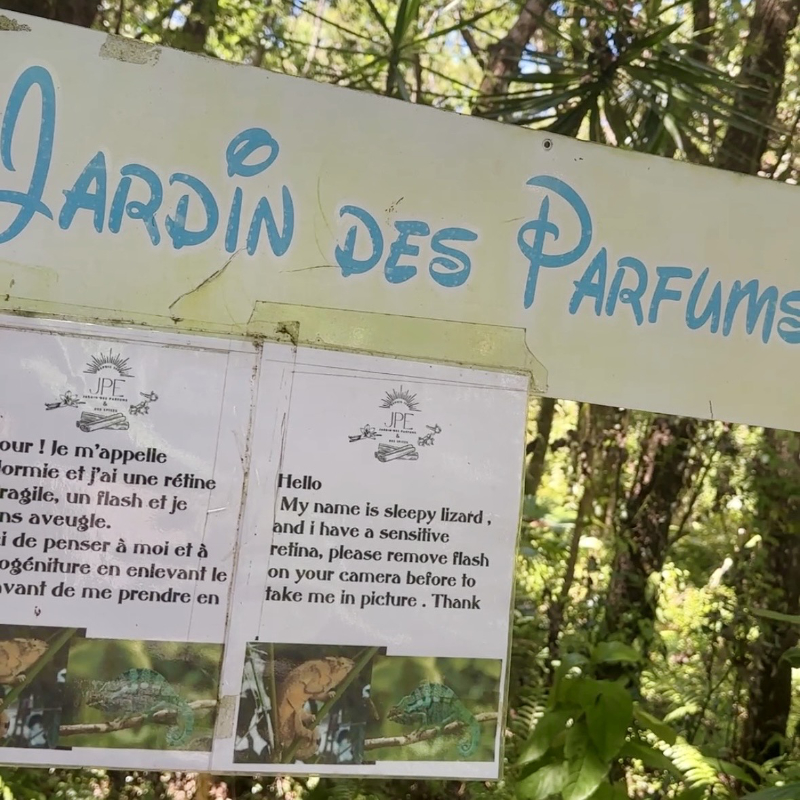 Jardin des Parfums
JPE
JARDIN DES PARFUMS
&
DES EPICES
our ! Je m'appelle
dormie et j'ai une rétine
ragile, un flash et je
ns aveugle.
i de penser à moi et à
ogéniture en enlevant le
avant de me prendre en
JPE
JARDIN DES PARFUMS
&
DES EPICES
Hello
My name is sleepy lizard ,
and i have a sensitive
retina, please remove flash
on your camera before to
take me in picture . Thank